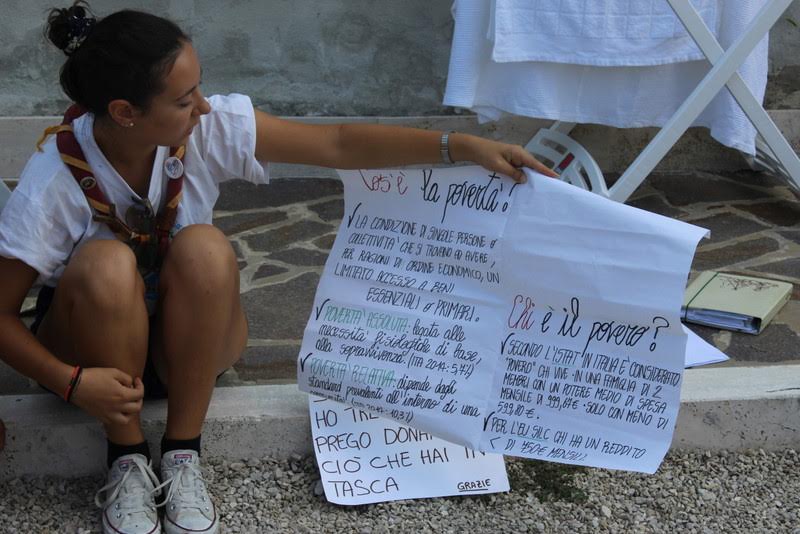 Cos'è la povertà?
✓ LA CONDIZIONE DI SINGOLE PERSONE O
COLLETTIVITÀ CHE SI TROVANO AD AVERE,
PER RAGIONI DI ORDINE ECONOMICO, UN
LIMITATO ACCESSO A BENI
ESSENZIALI O PRIMARI.
✓ POVERTÀ ASSOLUTA: legata alle
necessità fisiologiche di base,
alla sopravvivenza (ITA 2014:
✓ POVERTÀ RELATIVA: dipende dagli
standard prevalenti all'interno di una
Chi è il povero?
✓ SECONDO L'ISTAT IN ITALIA È CONSIDERATO
"POVERO" CHI VIVE · IN UNA FAMIGLIA DI 2
MEMBRI CON UN POTERE MEDIO DI SPESA
MENSILE DI 999,67 € · SOLO CON MENO DI
599,80 €.
✓ PER L'EU SILC CHI HA UN REDDITO
< DI 750€ MENSILI
HO
PREGO
CIÒ CHE HAI IN
TASCA GRAZIE